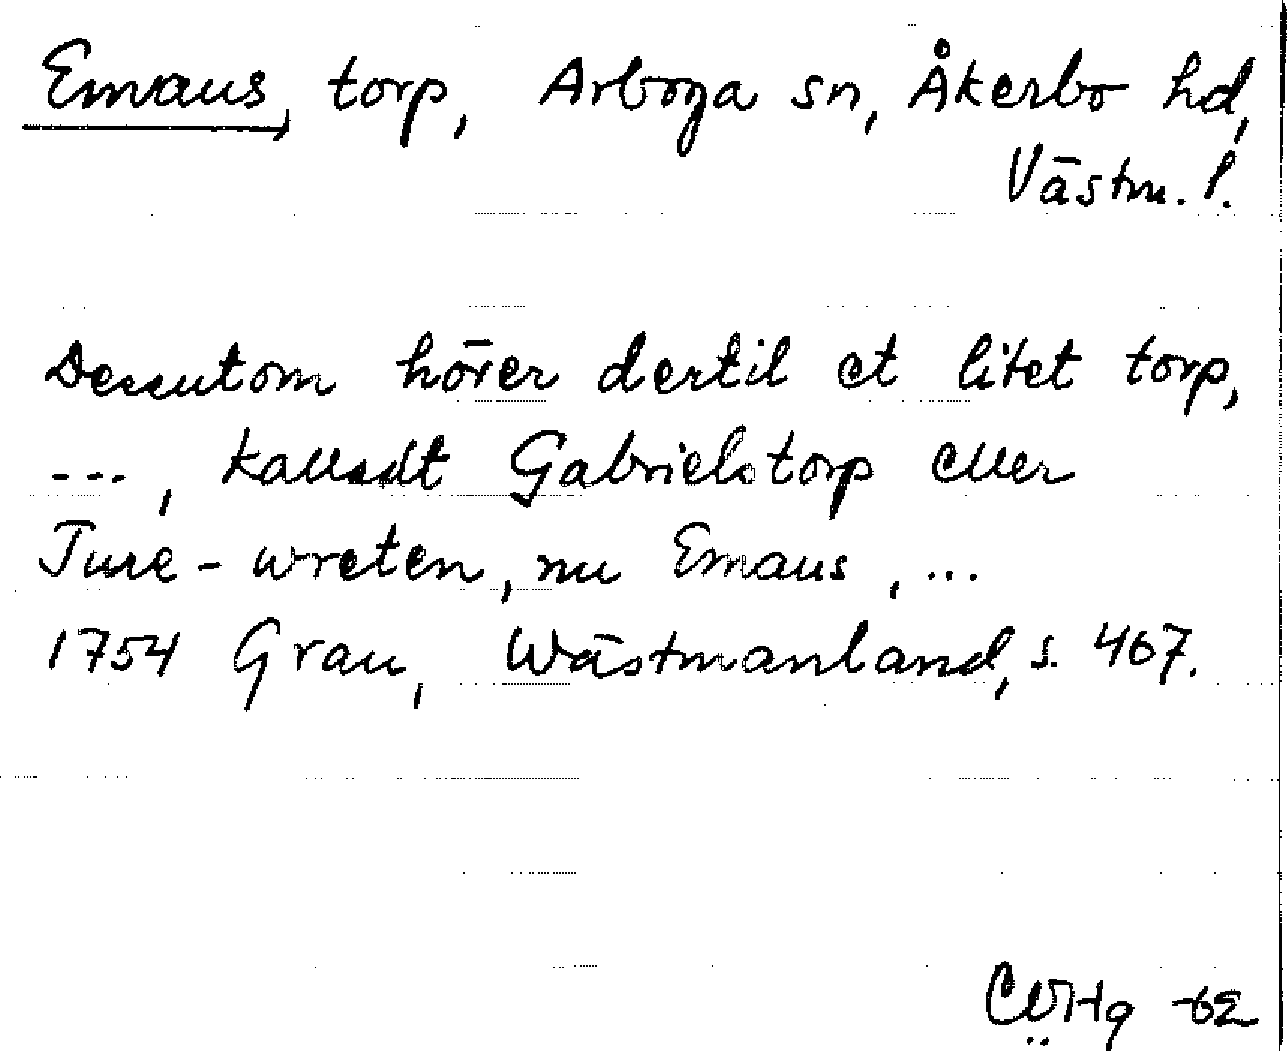 Emaus, torp, Arboga sn, Åkerbo hd,
Västm. l.
Dessutom hörer dertil et litet torp,
---, kalladt Gabrielstorp eller
Ture-wreten, nu Emaus, ...
1754 Grau, Wästmanland, s. 467.
-62